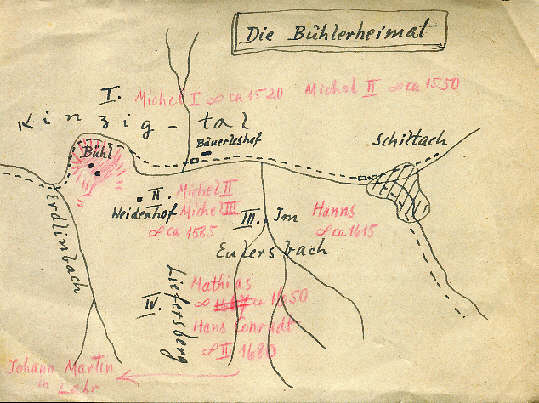 Die Bühlerheimat
I. Michel I ∞ ca 1520 Michel II ∞ ca 1550
Kinzig-tal
Bühl
Bäuerleshof
Schiltach
II. Michel II
Weidenhof Michel III
∞ ca 1585
III. Im
Eulersbach
Hanns
∞ ca 1615
Erdlinbach
IV. Liefersberg
Mathias
∞ ca 1650
Hans Conradt
∞ II 1680
Johann Martin
in Lahr